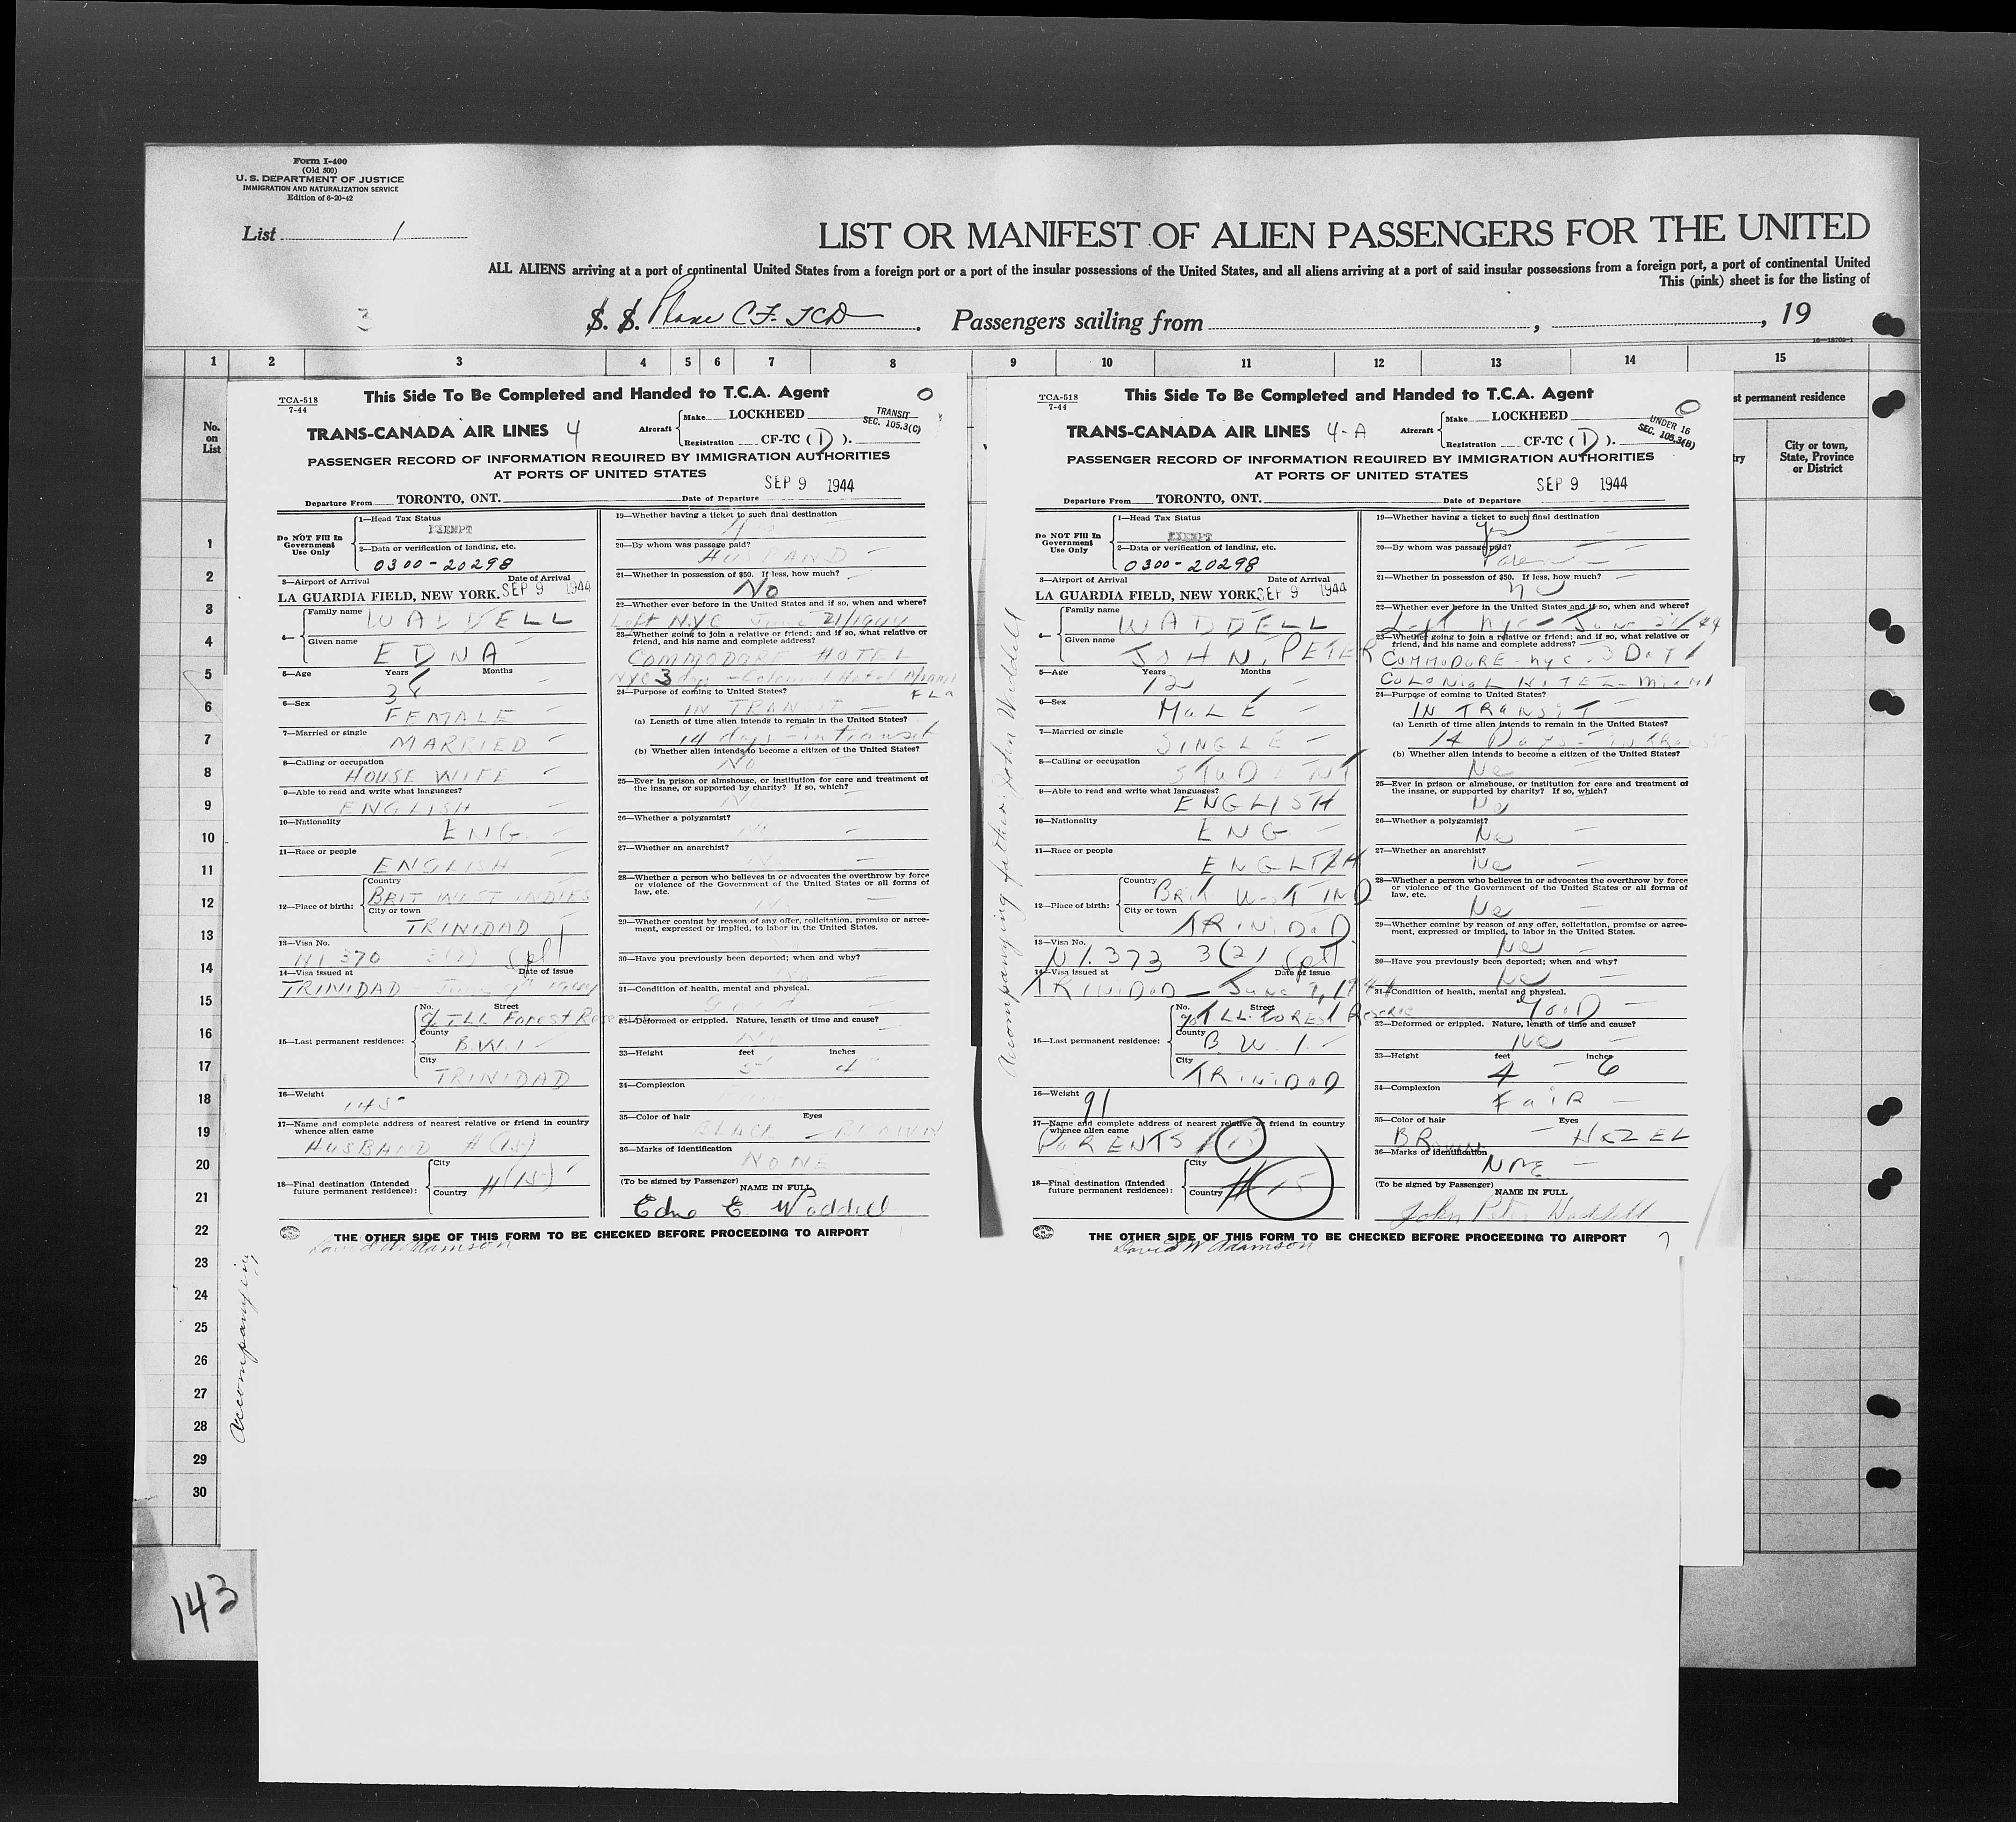 Form I-400
(Old 500)
U. S. DEPARTMENT OF JUSTICE
IMMIGRATION AND NATURALIZATION SERVICE
Edition of 6-20-42
List 1
LIST OR MANIFEST OF ALIEN PASSENGERS FOR THE UNITED
ALL ALIENS arriving at a port of continental United States from a foreign port or a port of the insular possessions of the United States, and all aliens arriving at a port of said insular possessions from a foreign port, a port of continental United
This (pink) sheet is for the listing of
S. S. Plane CF-TCD . Passengers sailing from , , 19
16—18709-1
1 2 3 4 5 6 7 8 9 10 11 12 13 14 15
No.
on
List
st permanent residence
try
City or town,
State, Province
or District
1
2
3
4
5
6
7
8
9
10
11
12
13
14
15
16
17
18
19
20
21
22
23
24
25
26
27
28
29
30
143
Accompanying
TCA-518
7-44
This Side To Be Completed and Handed to T.C.A. Agent
TRANS-CANADA AIR LINES 4
Aircraft
Make LOCKHEED
Registration CF-TC ( D ).
TRANSIT
SEC. 105.3(C)
PASSENGER RECORD OF INFORMATION REQUIRED BY IMMIGRATION AUTHORITIES
AT PORTS OF UNITED STATES
SEP 9 1944
Departure From TORONTO, ONT. Date of Departure
Do NOT Fill In
Government
Use Only
1—Head Tax Status
EXEMPT
2—Data or verification of landing, etc.
0300-20298
3—Airport of Arrival Date of Arrival
LA GUARDIA FIELD, NEW YORK. SEP 9 1944
4—
Family name
WADDELL
Given name
EDNA
5—Age Years Months
38
6—Sex
FEMALE
7—Married or single
MARRIED
8—Calling or occupation
HOUSE WIFE
9—Able to read and write what languages?
ENGLISH
10—Nationality
ENG.
11—Race or people
ENGLISH
12—Place of birth:
Country
BRIT WEST INDIES
City or town
TRINIDAD
13—Visa No.
NI 370 3(2)
14—Visa issued at Date of issue
TRINIDAD - June 9th 1944
15—Last permanent residence:
No. Street
c/o TLL Forest Reserve
County
B.W.I
City
TRINIDAD
16—Weight
145
17—Name and complete address of nearest relative or friend in country
whence alien came
HUSBAND # (15)
18—Final destination (Intended
future permanent residence):
City
Country
# (15)
19—Whether having a ticket to such final destination
20—By whom was passage paid?
HUSBAND
21—Whether in possession of $50. If less, how much?
No
22—Whether ever before in the United States and if so, when and where?
Left N.Y.C June 21/1944
23—Whether going to join a relative or friend; and if so, what relative or
friend, and his name and complete address?
COMMODORE HOTEL
NYC 3 days - Colonial Hotel Miami
FLA
24—Purpose of coming to United States?
IN TRANSIT
(a) Length of time alien intends to remain in the United States?
14 days - in transit
(b) Whether alien intends to become a citizen of the United States?
No
25—Ever in prison or almshouse, or institution for care and treatment of
the insane, or supported by charity? If so, which?
26—Whether a polygamist?
No
27—Whether an anarchist?
28—Whether a person who believes in or advocates the overthrow by force
or violence of the Government of the United States or all forms of
law, etc.
No
29—Whether coming by reason of any offer, solicitation, promise or agree-
ment, expressed or implied, to labor in the United States.
30—Have you previously been deported; when and why?
No
31—Condition of health, mental and physical.
Good
32—Deformed or crippled. Nature, length of time and cause?
33—Height feet inches
5 4
34—Complexion
35—Color of hair Eyes
BLACK - BROWN
36—Marks of identification
NONE
(To be signed by Passenger)
NAME IN FULL
Edna E Waddell
THE OTHER SIDE OF THIS FORM TO BE CHECKED BEFORE PROCEEDING TO AIRPORT
David W Adamson
Accompanying father: John Waddell
TCA-518
7-44
This Side To Be Completed and Handed to T.C.A. Agent
TRANS-CANADA AIR LINES 4-A
Aircraft
Make LOCKHEED
Registration CF-TC ( D ).
UNDER 16
SEC. 105.3(B)
PASSENGER RECORD OF INFORMATION REQUIRED BY IMMIGRATION AUTHORITIES
AT PORTS OF UNITED STATES
SEP 9 1944
Departure From TORONTO, ONT. Date of Departure
Do NOT Fill In
Government
Use Only
1—Head Tax Status
EXEMPT
2—Data or verification of landing, etc.
0300-20298
3—Airport of Arrival Date of Arrival
LA GUARDIA FIELD, NEW YORK. SEP 9 1944
4—
Family name
WADDELL
Given name
JOHN, PETER
5—Age Years Months
12
6—Sex
MALE
7—Married or single
SINGLE
8—Calling or occupation
STUDENT
9—Able to read and write what languages?
ENGLISH
10—Nationality
ENG
11—Race or people
ENGLISH
12—Place of birth:
Country
BRIT WEST IND
City or town
TRINIDAD
13—Visa No.
NI. 373 3(2)
14—Visa issued at Date of issue
TRINIDAD - June 9, 1944
15—Last permanent residence:
No. Street
c/o TLL. FOREST Reserve
County
B.W.I.
City
TRINIDAD
16—Weight
91
17—Name and complete address of nearest relative or friend in country
whence alien came
PARENTS # 15
18—Final destination (Intended
future permanent residence):
City
Country
# 15
19—Whether having a ticket to such final destination
Yes
20—By whom was passage paid?
21—Whether in possession of $50. If less, how much?
No
22—Whether ever before in the United States and if so, when and where?
Left nyc - June 21/44
23—Whether going to join a relative or friend; and if so, what relative or
friend, and his name and complete address?
COMMODORE - nyc - 3 DAY
COLONIAL HOTEL - MIAMI
24—Purpose of coming to United States?
IN TRANSIT
(a) Length of time alien intends to remain in the United States?
14 Days - IN TRANSIT
(b) Whether alien intends to become a citizen of the United States?
No
25—Ever in prison or almshouse, or institution for care and treatment of
the insane, or supported by charity? If so, which?
No
26—Whether a polygamist?
No
27—Whether an anarchist?
No
28—Whether a person who believes in or advocates the overthrow by force
or violence of the Government of the United States or all forms of
law, etc.
No
29—Whether coming by reason of any offer, solicitation, promise or agree-
ment, expressed or implied, to labor in the United States.
No
30—Have you previously been deported; when and why?
No
31—Condition of health, mental and physical.
GOOD
32—Deformed or crippled. Nature, length of time and cause?
No
33—Height feet inches
4 - 6
34—Complexion
FAIR
35—Color of hair Eyes
BROWN - HAZEL
36—Marks of identification
(To be signed by Passenger)
NAME IN FULL
John Peter Waddell
THE OTHER SIDE OF THIS FORM TO BE CHECKED BEFORE PROCEEDING TO AIRPORT
David W Adamson